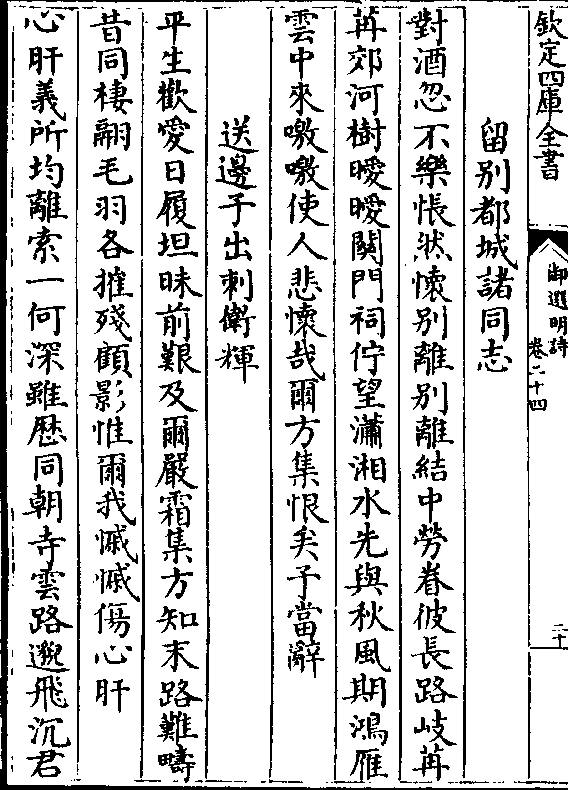 欽定四庫全書
御選明詩
卷二十四
二十
留别都城諸同志
對酒忽不樂悵然懷别離别離結中勞眷彼長路岐苒
苒郊河樹曖曖關門祠佇望瀟湘水先與秋風期鴻雁
雲中來嗷嗷使人悲懷哉爾方集恨矣予當辭
送邊子出刺衛輝
平生歡愛日履坦昧前艱及爾嚴霜集方知末路難疇
昔同棲翮毛羽各摧殘顧影惟爾我慽慽傷心肝
心肝義所均離索一何深雖歴同朝寺雲路邈飛沉君